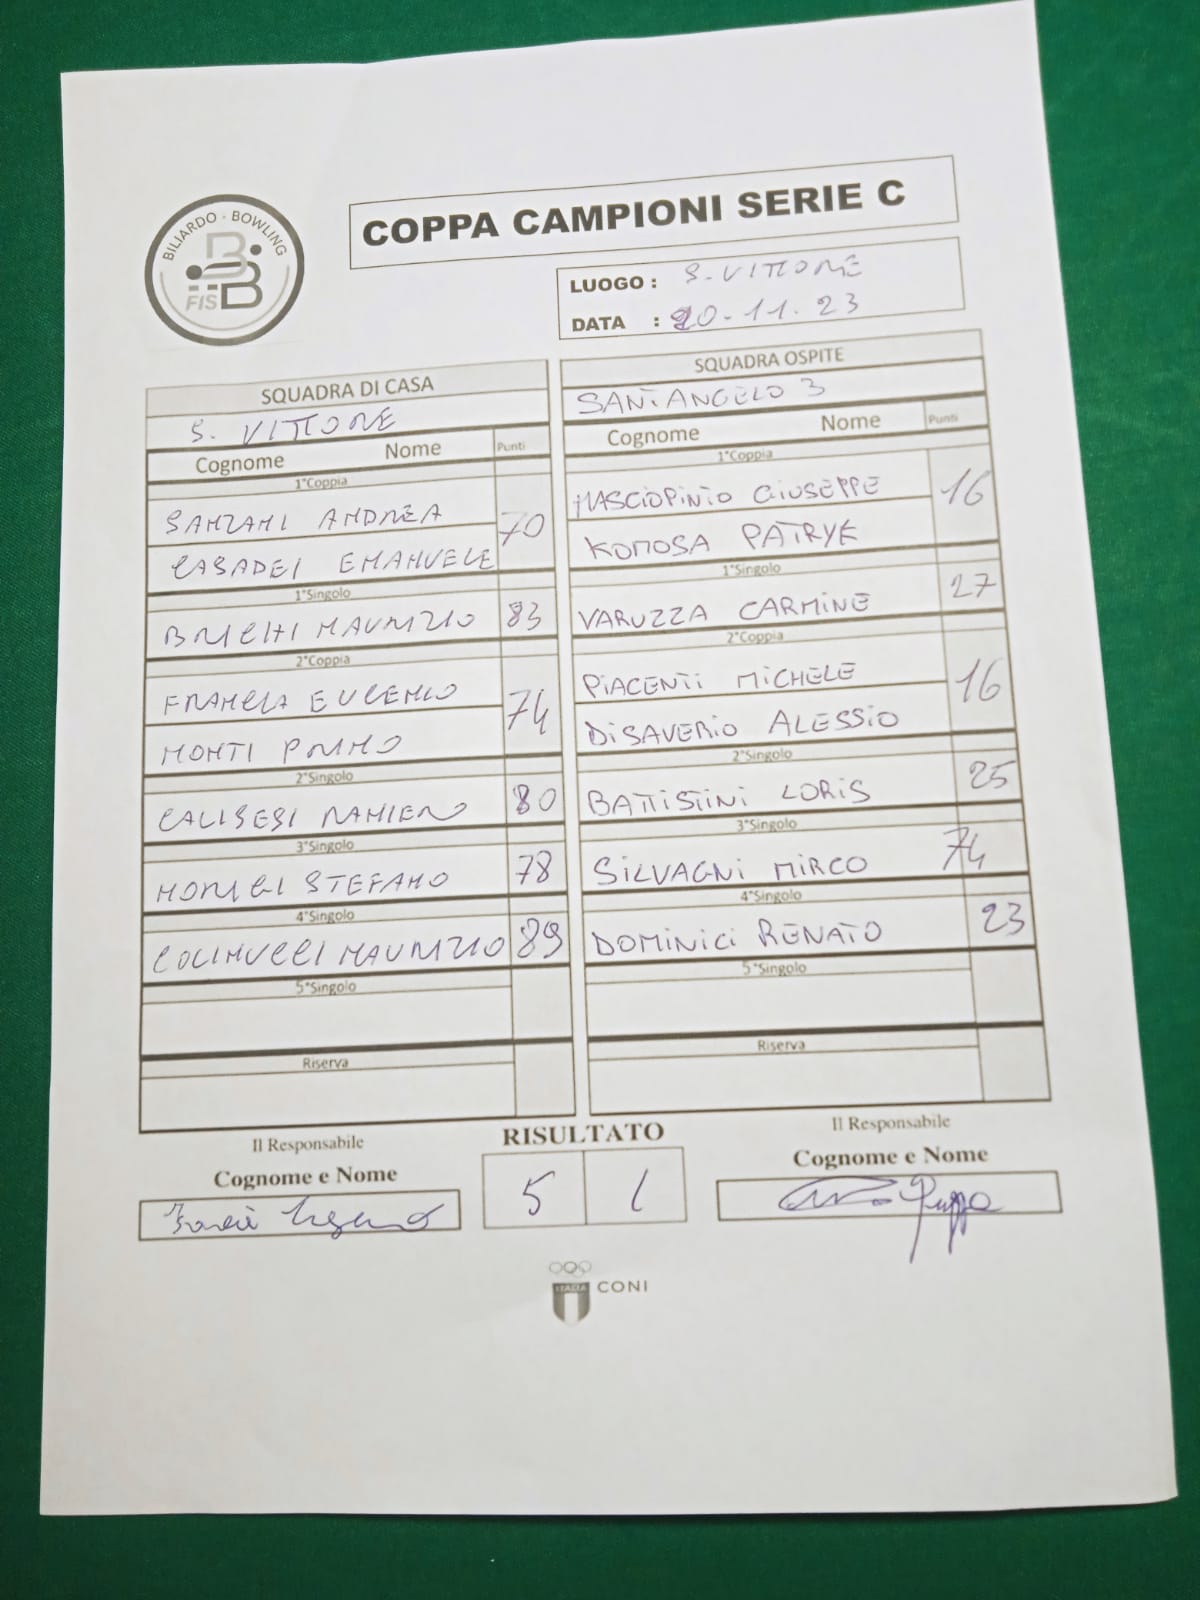 BILIARDO - BOWLING
FISBB
COPPA CAMPIONI SERIE C
LUOGO : S. VITTORE
DATA : 20-11.23
SQUADRA DI CASA
S. VITTORE
Cognome Nome Punti
1°Coppia
SANZANI ANDREA 70
CASADEI EMANUELE
1°Singolo
BRICHI MAURIZIO 83
2°Coppia
FRANCIA EUGENIO 74
MONTI PRIMO
2°Singolo
CALISESI RANIERO 80
3°Singolo
MORIGI STEFANO 78
4°Singolo
COLINUCCI MAURIZIO 89
5°Singolo
Riserva
SQUADRA OSPITE
SANTANGELO 3
Cognome Nome Punti
1°Coppia
MASCIOPINTO GIUSEPPE 16
KOMOSA PATRYK
1°Singolo
VARUZZA CARMINE 27
2°Coppia
PIACENTI MICHELE 16
DISAVERIO ALESSIO
2°Singolo
BATTISTINI LORIS 25
3°Singolo
SILVAGNI MIRCO 74
4°Singolo
DOMINICI RENATO 23
5°Singolo
Riserva
Il Responsabile
Cognome e Nome
RISULTATO
5 1
Il Responsabile
Cognome e Nome
ITALIA
CONI